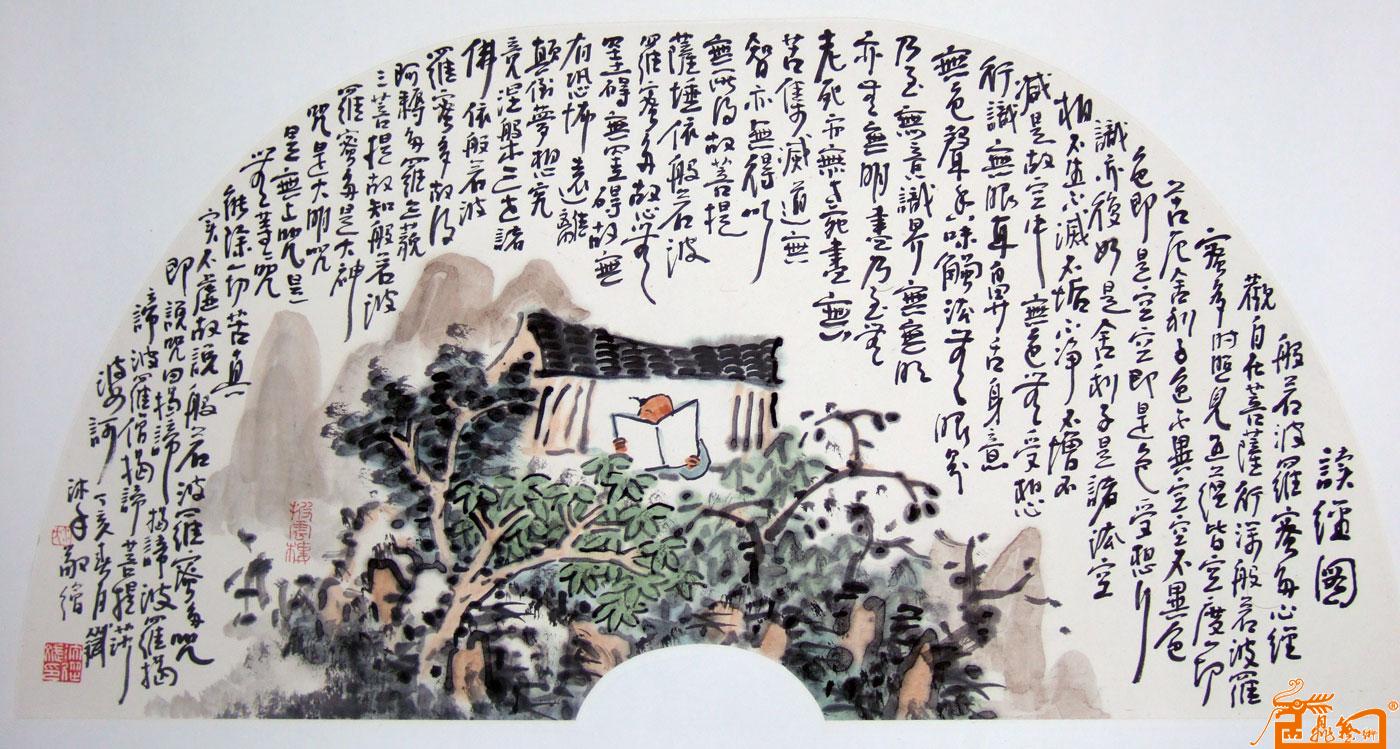 讀經圖
般若波羅蜜多心經
觀自在菩薩行深般若波羅
蜜多時照見五蘊皆空度一切
苦厄舍利子色不異空空不異色
色即是空空即是色受想行
識亦復如是舍利子是諸法空
相不生不滅不垢不淨不增不
減是故空中無色無受想
行識無眼耳鼻舌身意
無色聲香味觸法無眼界
乃至無意識界無無明
亦無無明盡乃至無
老死亦無老死盡無
苦集滅道無
智亦無得以
無所得故菩提
薩埵依般若波
羅蜜多故心無
罣礙無罣礙故無
有恐怖遠離
顛倒夢想究
竟涅槃三世諸
佛依般若波
羅蜜多故得
阿耨多羅三藐
三菩提故知般若波
羅蜜多是大神
咒是大明咒
是無上咒是
無等等咒
能除一切苦真
實不虛故說般若波羅蜜多咒
即說咒曰揭諦揭諦波羅揭
諦波羅僧揭諦菩提莎
婆訶丁亥春月
沐手敬繪